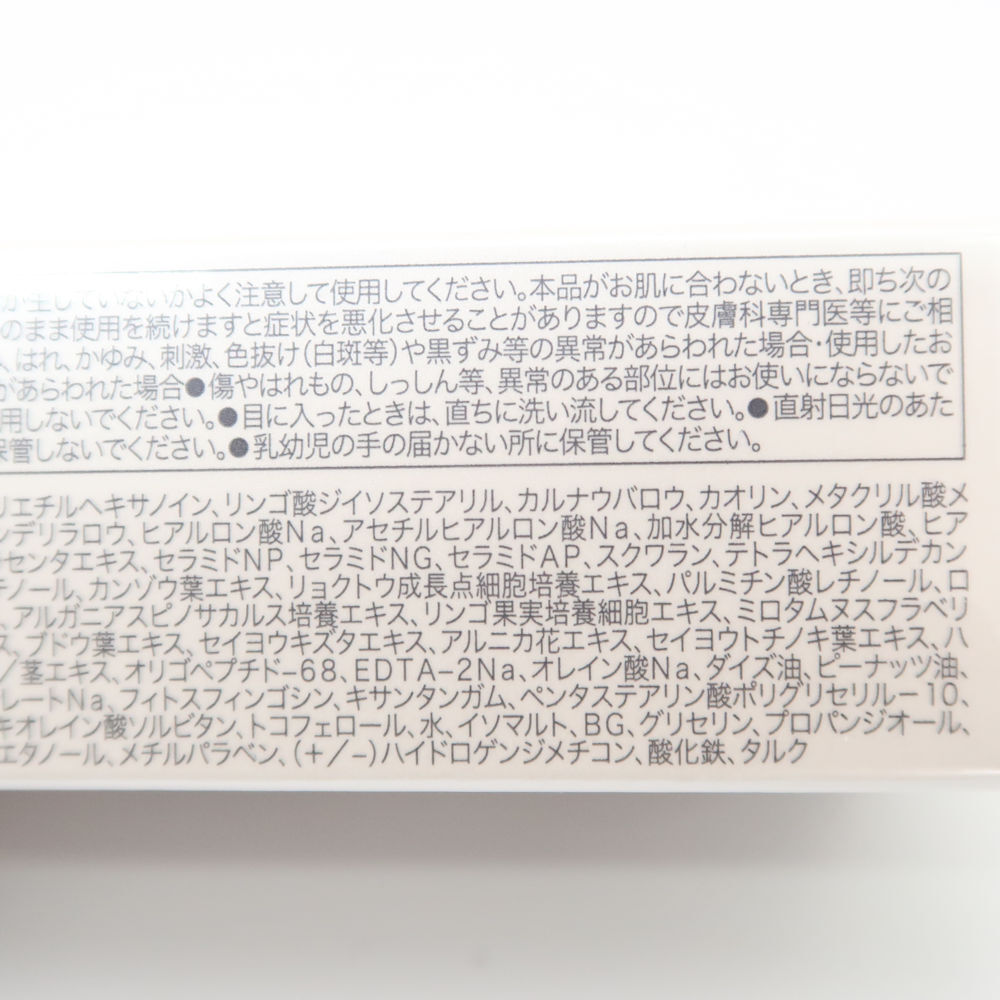 が生じていないかよく注意して使用してください。本品がお肌に合わないとき、即ち次の
のまま使用を続けますと症状を悪化させることがありますので皮膚科専門医等にご相
、はれ、かゆみ、刺激、色抜け(白斑等)や黒ずみ等の異常があらわれた場合・使用したお
があらわれた場合●傷やはれもの、しっしん等、異常のある部位にはお使いにならないで
用しないでください。●目に入ったときは、直ちに洗い流してください。●直射日光のあた
保管しないでください。●乳幼児の手の届かない所に保管してください。
リエチルヘキサノイン、リンゴ酸ジイソステアリル、カルナウバロウ、カオリン、メタクリル酸メ
ンデリラロウ、ヒアルロン酸Na、アセチルヒアルロン酸Na、加水分解ヒアルロン酸、ヒア
センタエキス、セラミドNP、セラミドNG、セラミドAP、スクワラン、テトラヘキシルデカン
チノール、カンゾウ葉エキス、リョクトウ成長点細胞培養エキス、パルミチン酸レチノール、ロ
、アルガニアスピノサカルス培養エキス、リンゴ果実培養細胞エキス、ミロタムヌスフラベリ
ス、ブドウ葉エキス、セイヨウキズタエキス、アルニカ花エキス、セイヨウトチノキ葉エキス、ハ
/茎エキス、オリゴペプチド-68、EDTA-2Na、オレイン酸Na、ダイズ油、ピーナッツ油、
レートNa、フィトスフィンゴシン、キサンタンガム、ペンタステアリン酸ポリグリセリル-10、
キオレイン酸ソルビタン、トコフェロール、水、イソマルト、BG、グリセリン、プロパンジオール、
エタノール、メチルパラベン、(+/-)ハイドロゲンジメチコン、酸化鉄、タルク